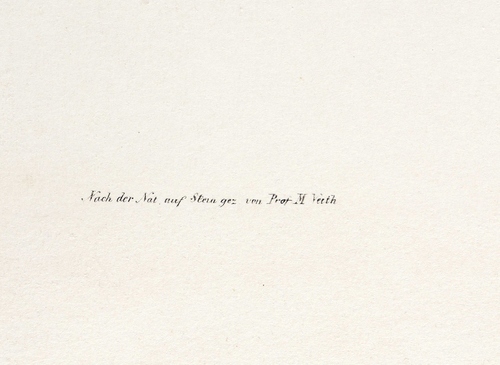 Nach der Nat auf Stein gez von Prof M Veith